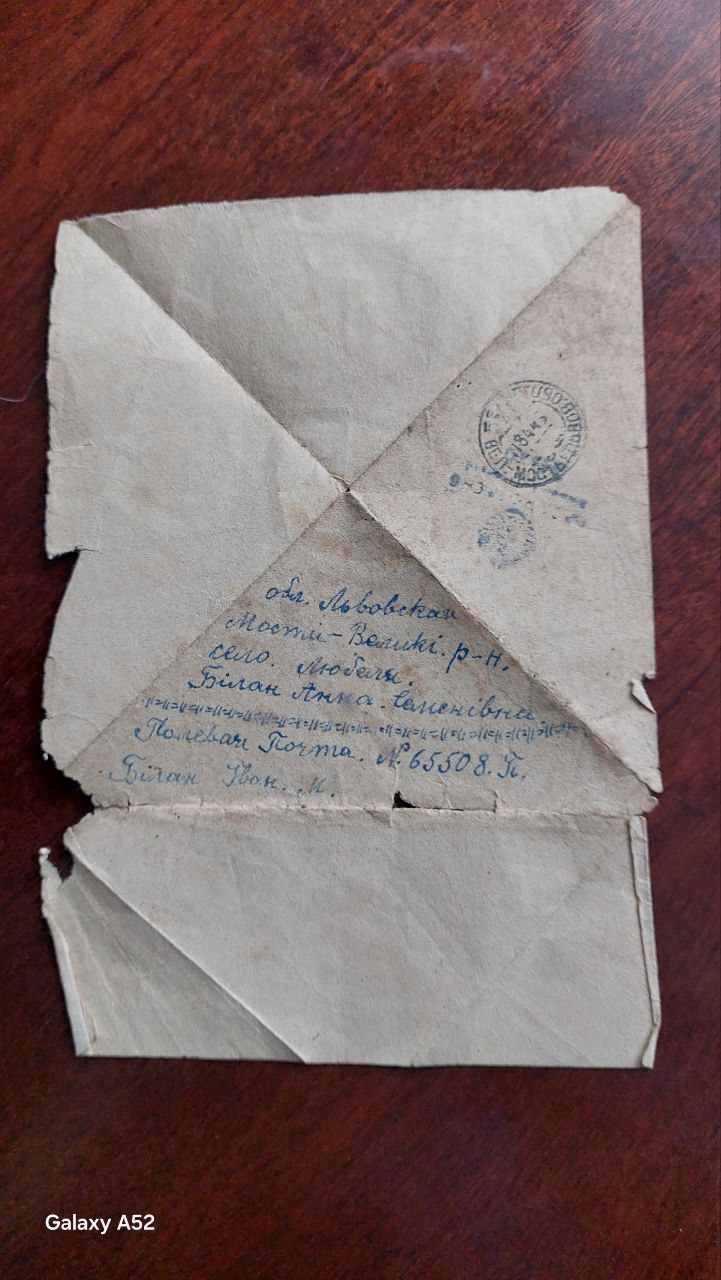 ВЕЛ-МОСТЫ
обл. Львовская
Мости-Великі. р-н.
село. Любеля.
Білан Анна. Семенівна
Полевая Почта. №65508. П.
Білан Іван. М.
Galaxy A52